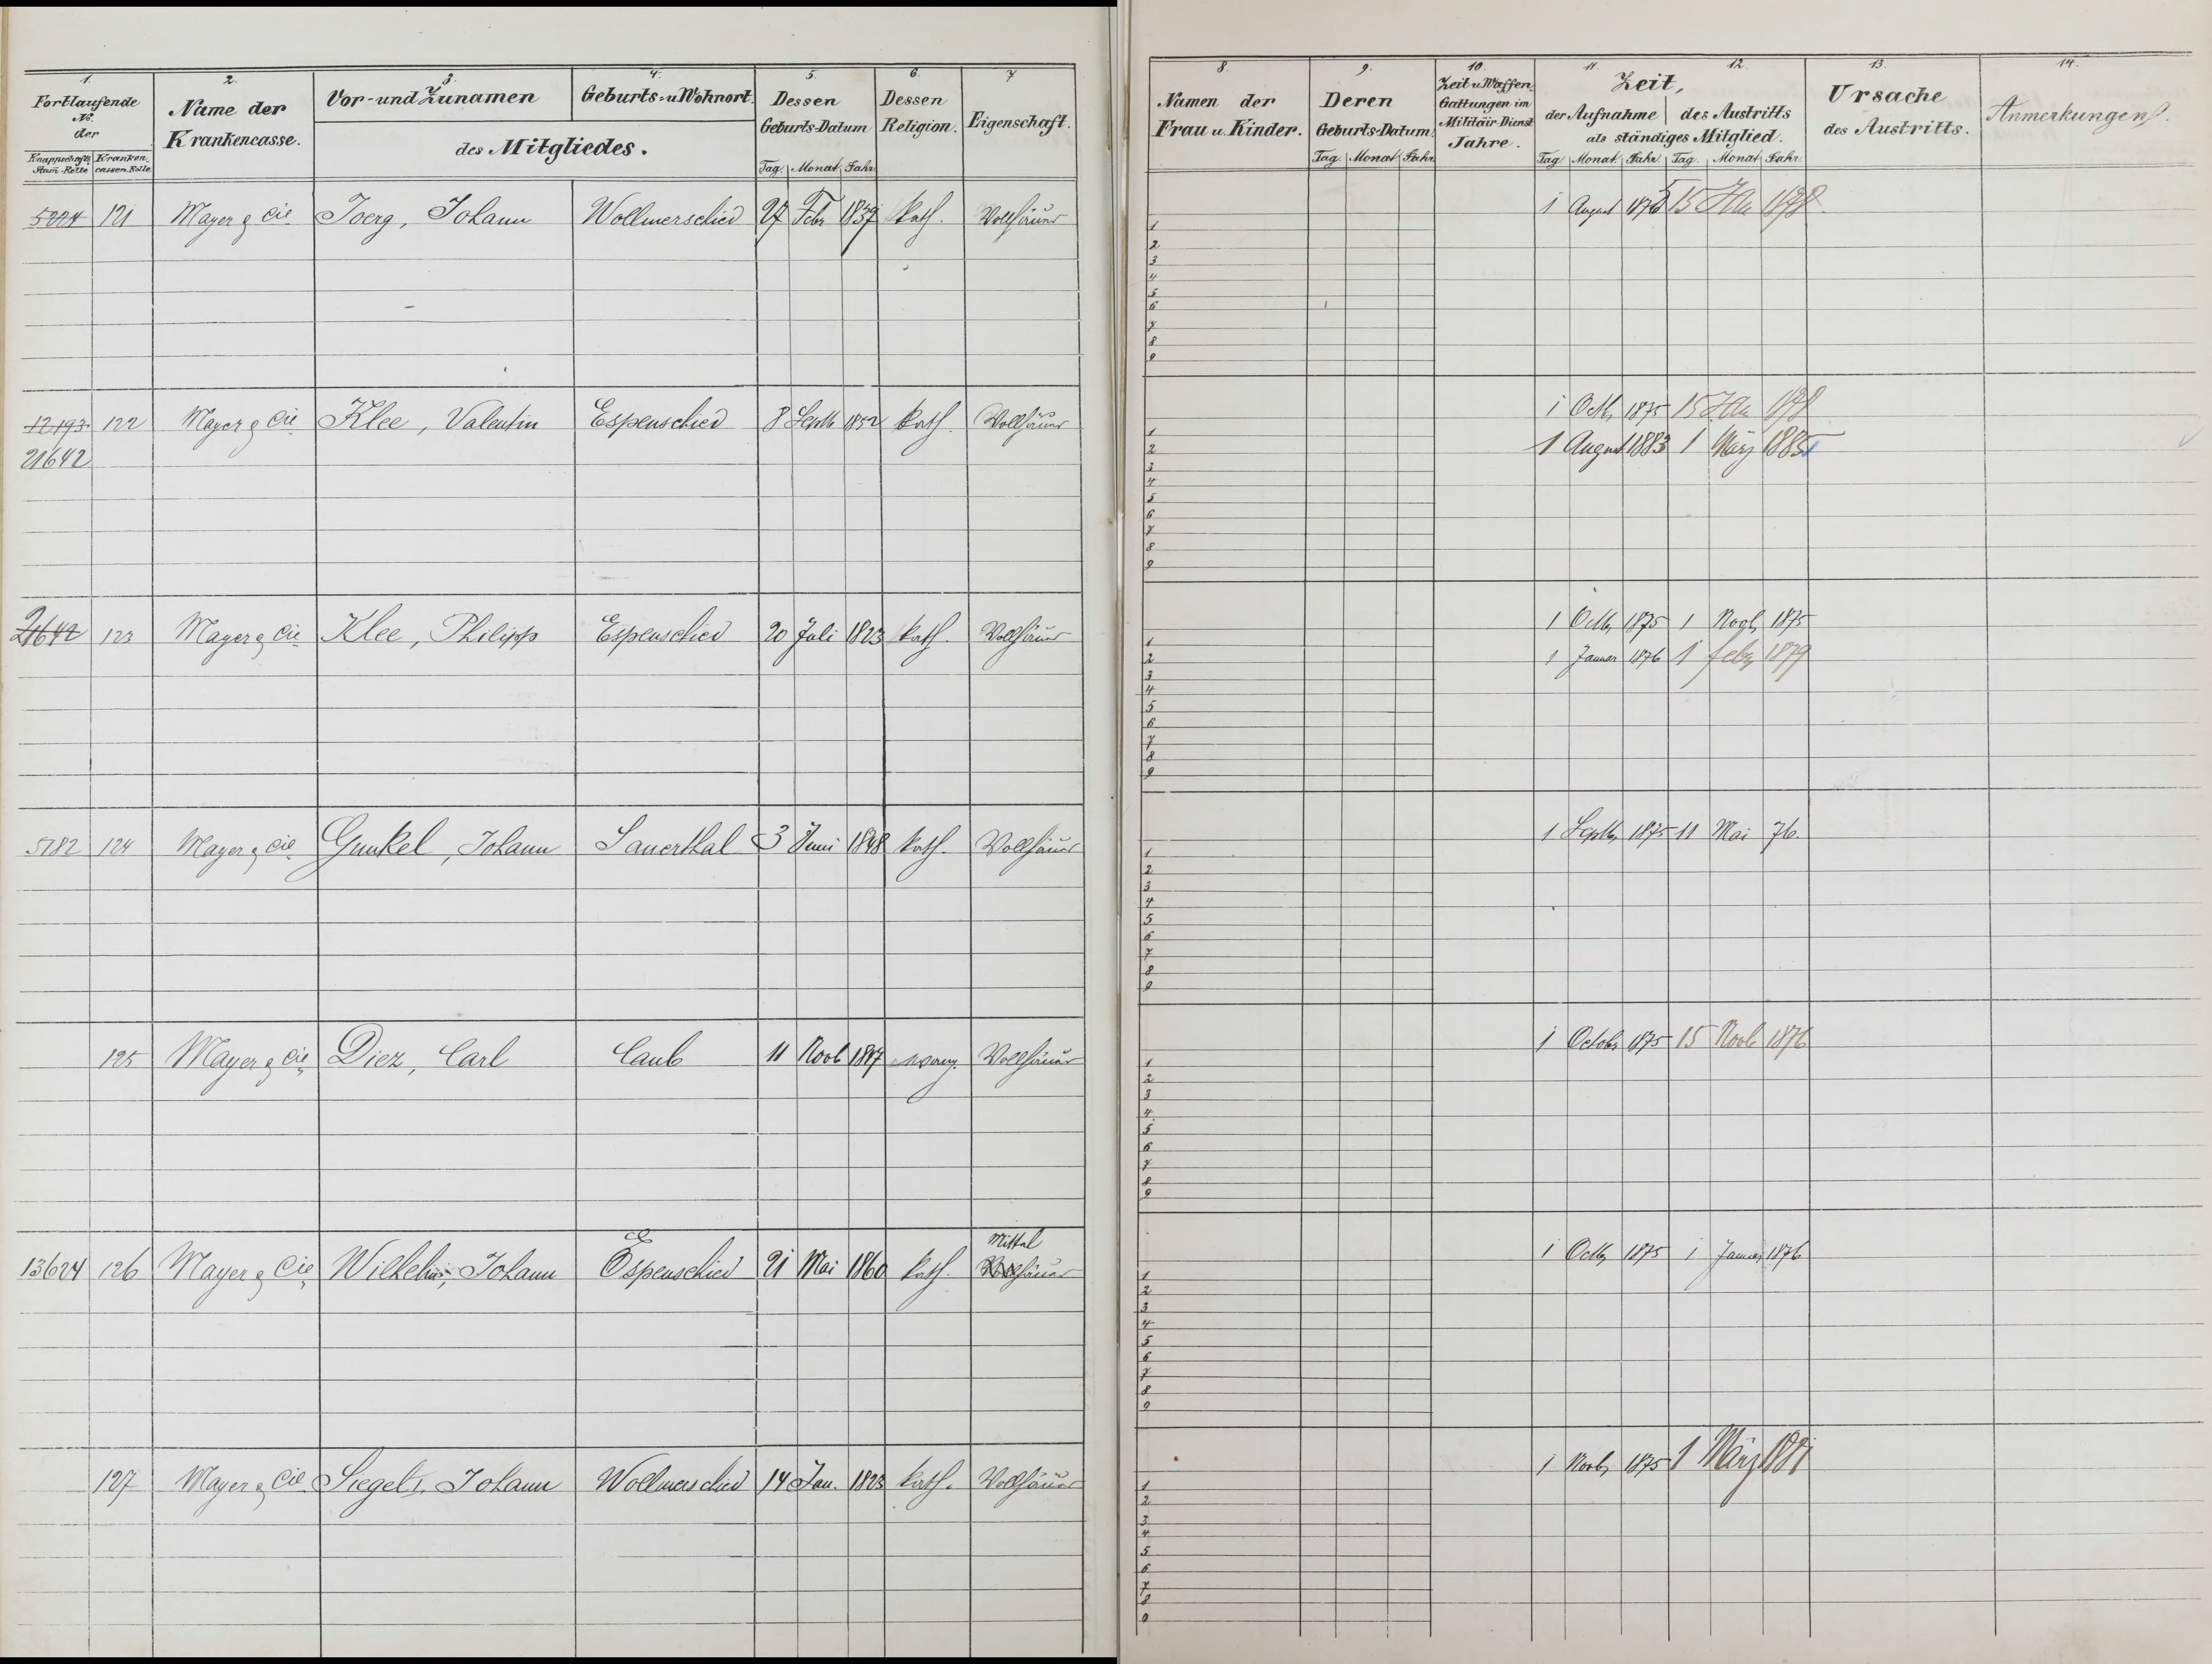 1. 2. 3. 4. 5. 6. 7
Fortlaufende No. der
Knappschafts Stam-Rolle
Kranken cassen Rolle
Name der Krankencasse.
Vor- und Zunamen
Geburts- u Wohnort.
des Mitgliedes.
Dessen Geburts-Datum
Tag. Monat Jahr
Dessen Religion.
Eigenschaft.
8. 9. 10. 11. 12. 13. 14.
Namen der Frau u. Kinder.
Deren Geburts-Datum.
Tag. Monat Jahr.
Zeit u Waffen Gattungen im Militäir-Dienst Jahre.
Zeit,
der Aufnahme des Austritts
als ständiges Mitglied.
Tag Monat Jahr Tag. Monat Jahr.
Ursache des Austritts.
Anmerkungen.
5224 121 Mayer & Cie Joerg, Johann Wollmerschied 27 Febr 1837 kath. Vollhäuer 1 August 1875 15 1878.
1
2
3
4
5
6
7
8
9
12193 122 Mayer & Cie Klee, Valentin Espenschied 8 Septb 1852 kath. Vollhäuer 1 Octb, 1875 15 1878
21642 1 August 1883 1 März 1885
1
2
3
4
5
6
7
8
9
21642 123 Mayer & Cie Klee, Philipp Espenschied 20 Juli 1823 kath. Vollhäuer 1 Octb, 1875 1 Novb, 1875
1 Januar 1876 1 feb, 1879
1
2
3
4
5
6
7
8
9
5782 124 Mayer & Cie Gunkel, Johann Sauerthal 3 Juni 1848 kath. Vollhäuer 1 Septb, 1875 11 Mai 76.
1
2
3
4
5
6
7
8
9
125 Mayer & Cie, Diez, Carl Caub 11 Novb 1847 evang. Vollhäuer 1 Octobr 1875 15 Novb 1876
1
2
3
4
5
6
7
8
9
Mittel
13624 126 Mayer & Cie, Wilhelm, Johann Espenschied 21 Mai 1860 kath. Vollhäuer 1 Octb, 1875 1 Januar 1876
1
2
3
4
5
6
7
8
9
127 Mayer & Cie Siegel I, Johann Wollmerschied 14 Jan. 1823 kath. Vollhäuer 1 Novb, 1875 1 März 1881
1
2
3
4
5
6
7
8
9